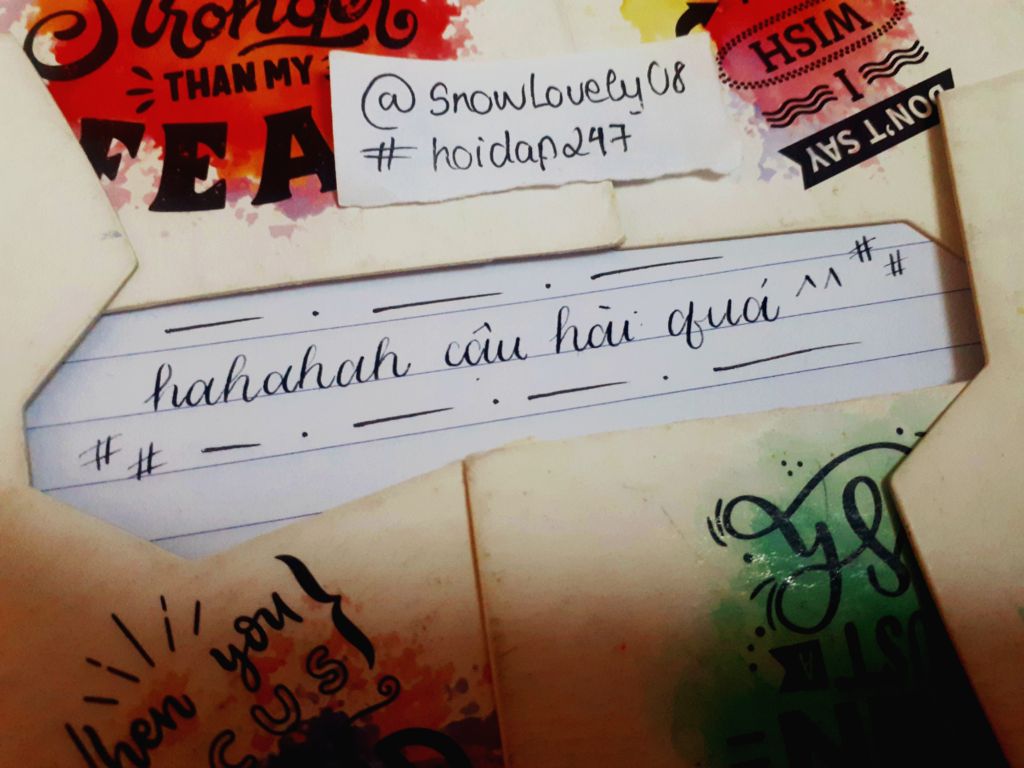 Stronger
THAN MY
FEA
@SnowLovely08
#hoidap247
WISH
I
DON'T SAY
hahahah câu hài quá ^^ ##
##
when you